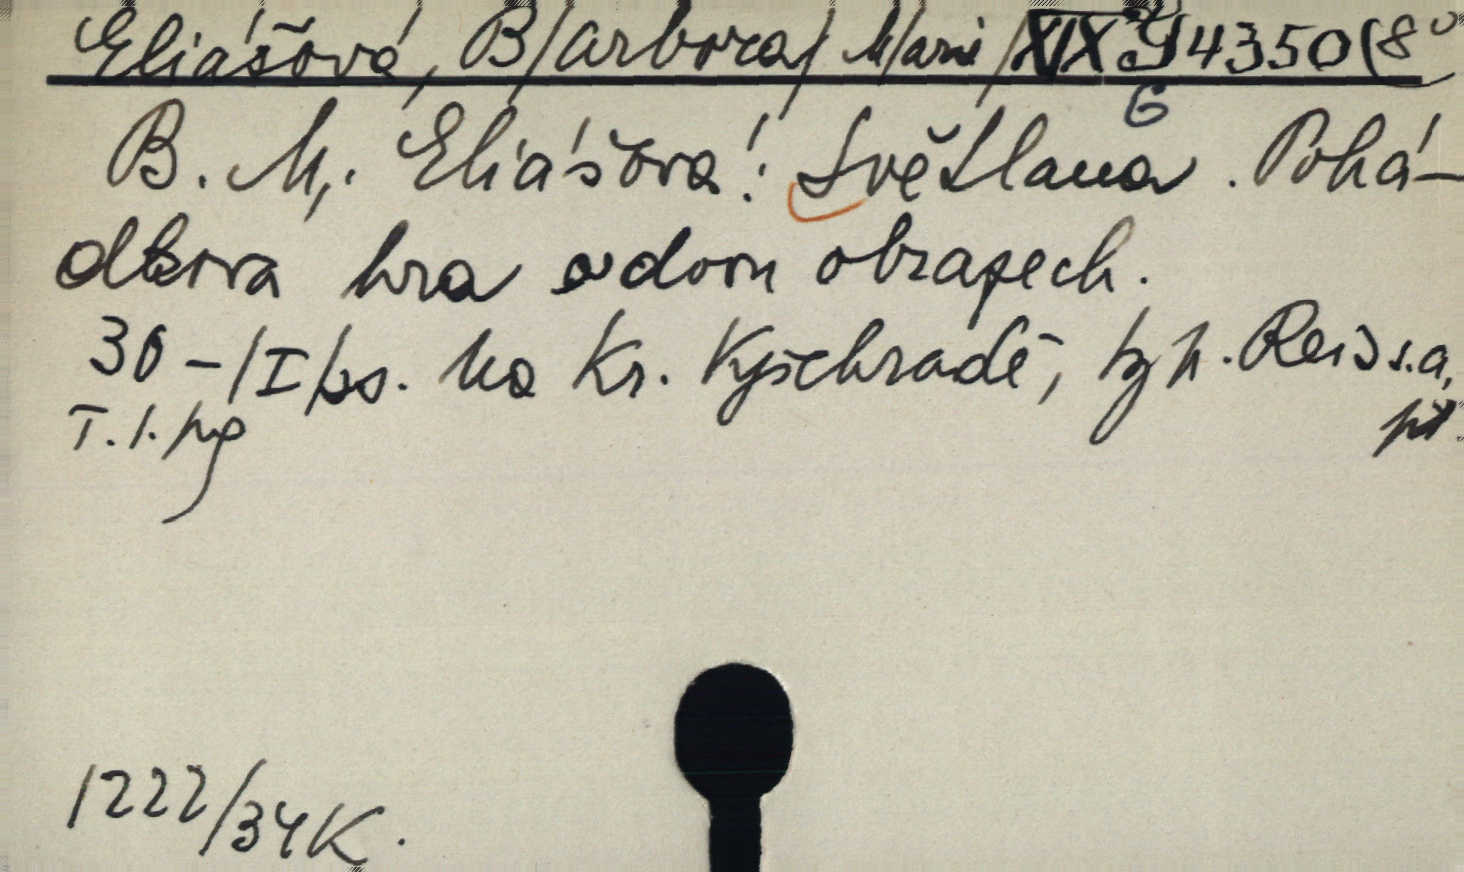 Eliášová, B/arbora/ M/arie/ XIX G 4350 (8°
B. M. Eliášová: Světlana. Pohá-
dková hra o dvou obrazech.
30 - /I/ s. Na Kr. Vyšehradě, Reis s.a.
T. l. pg
1222/34K.